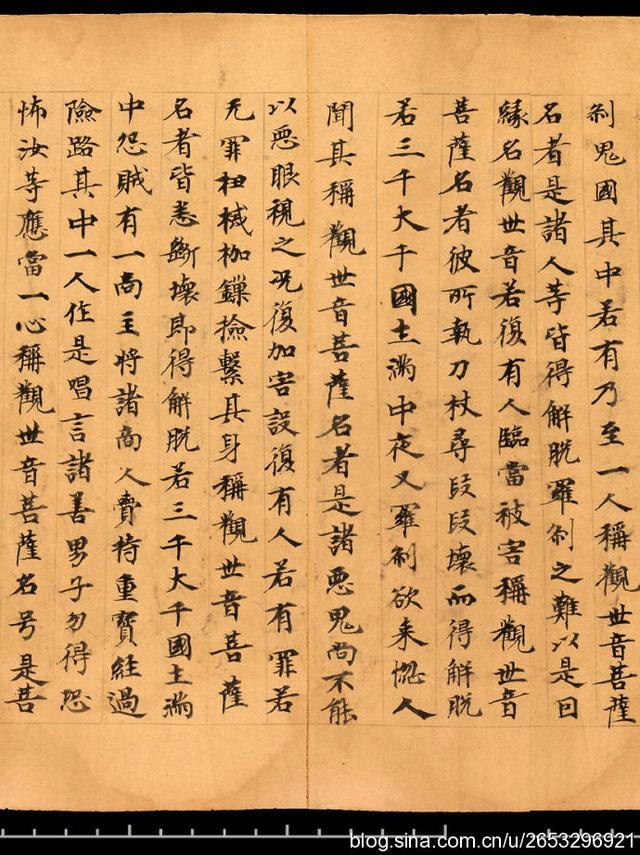 刹鬼國其中若有乃至一人稱觀世音菩薩
名者是諸人等皆得解脫羅刹之難以是因
緣名觀世音若復有人臨當被害稱觀世音
菩薩名者彼所執刀杖尋段段壞而得解脫
若三千大千國土滿中夜叉羅刹欲来惱人
聞其稱觀世音菩薩名者是諸惡鬼尚不能
以惡眼視之况復加害設復有人若有罪若
无罪杻械枷鏁撿繫其身稱觀世音菩薩
名者皆悉斷壞即得解脫若三千大千國土滿
中怨賊有一商主將諸商人賷持重寶經過
險路其中一人作是唱言諸善男子勿得恐
怖汝等應當一心稱觀世音菩薩名号是菩
blog.sina.com.cn/u/2653296921